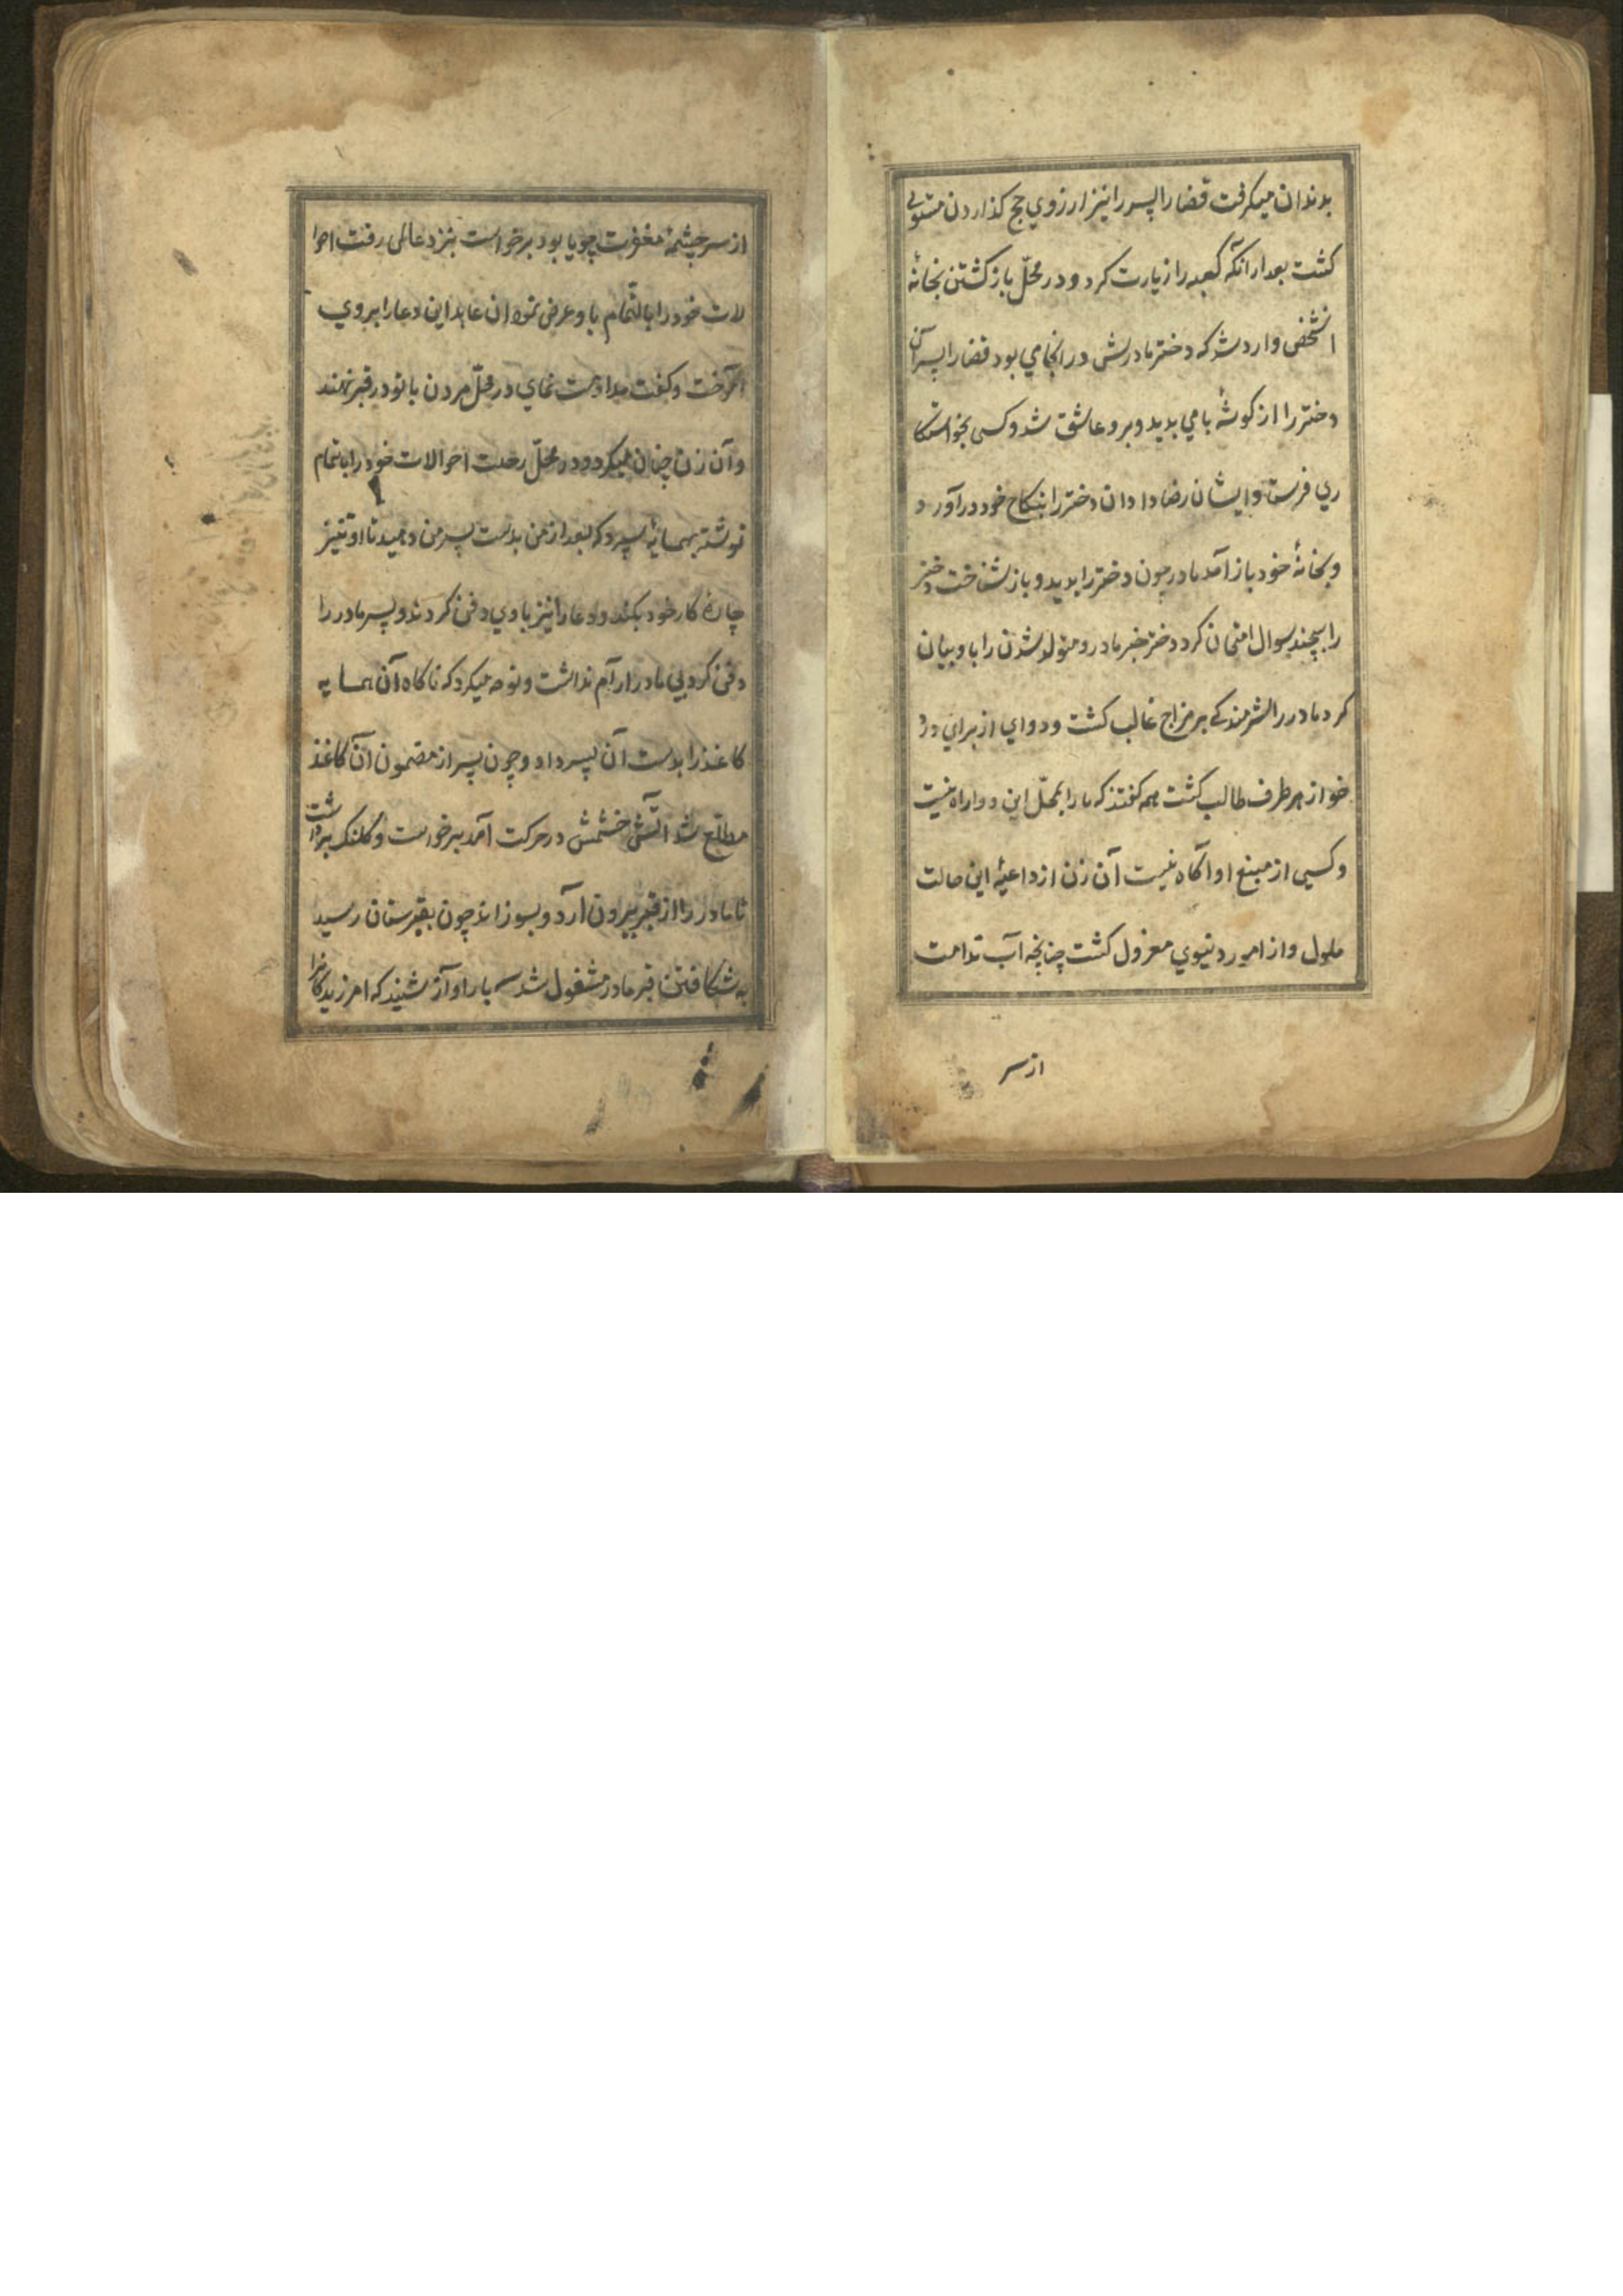 بدندان میکرفت قضارا پسر را نیز ارزوي حج کذاردن مستولی
کشت بعد ارانکه کعبه را زیارت کرد و در محلّ باز کشتن بخانهٔ
انشخص وارد شد که دختر مادرش در انجا می بود قضارا پسر آن
دختر را از کوشهٔ بامي بدید و برو عاشق شد و کسی بخواستکا
ري فرستاد و ایشان رضا دادان دختر را بنکاح خود درآورد
و بخانهٔ خود باز آمد مادر چون دختر را بدید و باز شناخت دختر
را بچند سوال امتحان کرد دختر خبر مادر و متولد شدن را با و بیان
کرد مادر را شرمندکے بر مزاج غالب کشت و دواي از براي درد
خود از هر طرف طالب کشت همه کفتند که ما را بمحلّ این دوا راه نیست
و کسی از منبع او آکاه نیست آن زن از داعیهٔ این حالت
ملول و از امور دنیوي معزول کشت چنانچه آب ندامت
از سر
از سر چشمهٔ مغفرت جویا بود برخواست بنزد عالمی رفت احوا
لات خود را بالتّمام با و عرض نمود ان عابد این دعا را بر وي
آموخت و کفت مداومت نماي در محلّ مردن با تو در قبر نهند
و آن زن چنان میکرد و در محلّ رحلت احوالات خود را بتمام
نوشته بهمسایهٔ سپرد که بعد از من بدست پسر من دهید تا او نیز
چارهٔ کار خود بکند و دعا را نیز با وي دفن کردند و پسر مادر را
دفن کرد بي مادر ارآم نداشت و نوحه میکرد که ناکاه آن همسایه
کاغذ را بدست آن پسر داد و چون پسر از مضمون ان کاغذ
مطلّع شد آتش خشمش در حرکت آمد برخواست و کلنک برداشت
تا مادر را از قبر بیرون آرد و بسوزاند چون بقبرستان رسید
به شکافتن قبر مادر مشغول شد سه بار اواز شنید که امرزیدکانرا